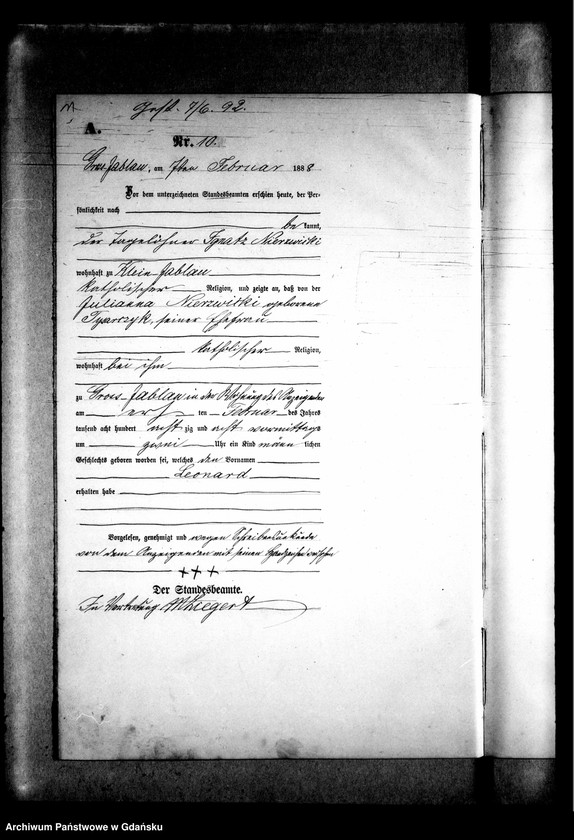 Gest. 7/6. 92.
A.
Nr. 10.
Gross Jablau, am 7ten Februar 1888
Vor dem unterzeichneten Standesbeamten erschien heute, der Per-
sönlichkeit nach
be kannt,
der Tagelöhner Ignatz Nierzwicki
wohnhaft zu Klein Jablau
katholischer Religion, und zeigte an, daß von der
Julianna Nierzwicki geborene
seiner Ehefrau
katholischer Religion,
wohnhaft bei ihm
zu Gross Jablau in der Wohnung des Anzeigenden
am ten Februar des Jahres
tausend acht hundert acht zig und acht vormittags
um zwei Uhr ein Kind männ lichen
Geschlechts geboren worden sei, welches den Vornamen
Leonard
erhalten habe
Vorgelesen, genehmigt und wegen Schreibensunkunde
von dem Anzeigenden mit seinem Handzeichen versehen
+++
Der Standesbeamte.
In Vertretung
Archiwum Państwowe w Gdańsku